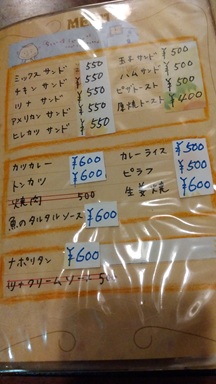 MENU
ミックス サンド 550
チキン サンド ¥550
ツナ サンド ¥550
アメリカン サンド ¥550
ヒレカツ サンド ¥550
玉子 サンド ¥500
ハムサンド ¥500
ピザトースト ¥500
厚焼トースト ¥400
カツカレー ¥600
トンカツ ¥600
焼肉 500
魚のタルタルソース ¥600
カレーライス ¥500
ピラフ ¥500
生姜焼 ¥600
ナポリタン ¥600
ツナクリームソース